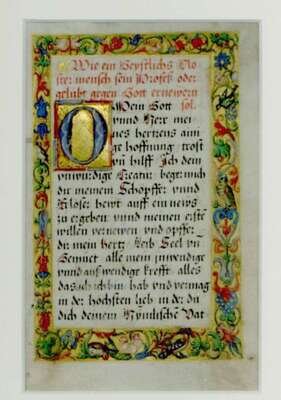 Wie ein Geystlichs Clo
ster mensch sein Profeß oder
gelübt gegen Gott ernewern
sol.
O Mein Gott
vnnd Herr mei
nes hertzens aini
ge hoffnung trost
vn̄ hilff Ich dein
vnwürdige Creatur beger mich
dir meinem Schöpffer vnnd
Erloser hewt auff ein news
zu ergeben vnnd meinen erste
willen vernewen vnd opffer
dir mein hertz Leib Seel vn̄
Gemüet alle mein inwendige
vnnd außwendige krefft alles
das ich bin hab vnd vermag
in der höchsten lieb in der du
dich deinem Hymlische Vat